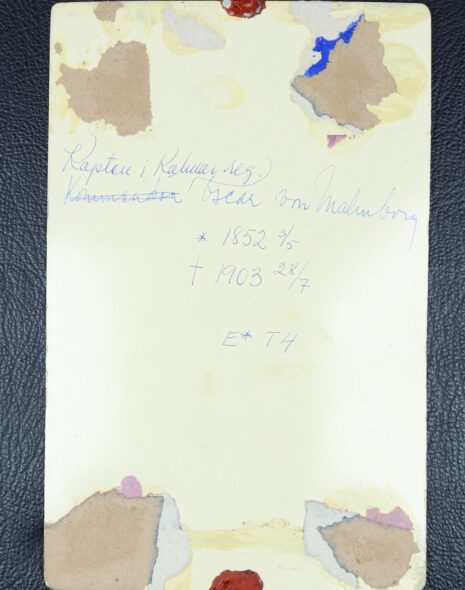 Kapten i Kalmar reg.
Kommendör Oscar von Malmborg
* 1852 3/5
† 1903 28/7
E* T4